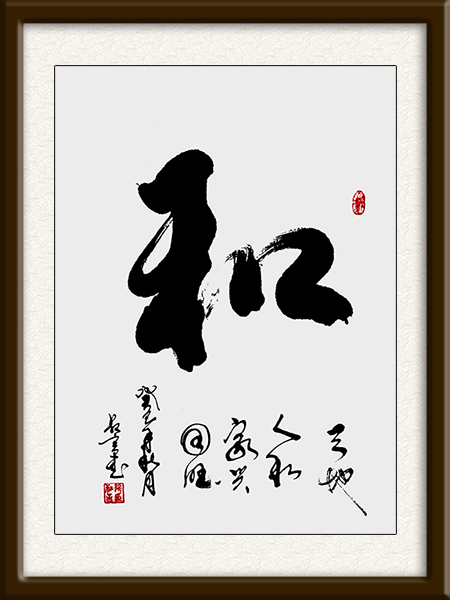 和
天地
人和
家兴
国旺
癸巳年秋月